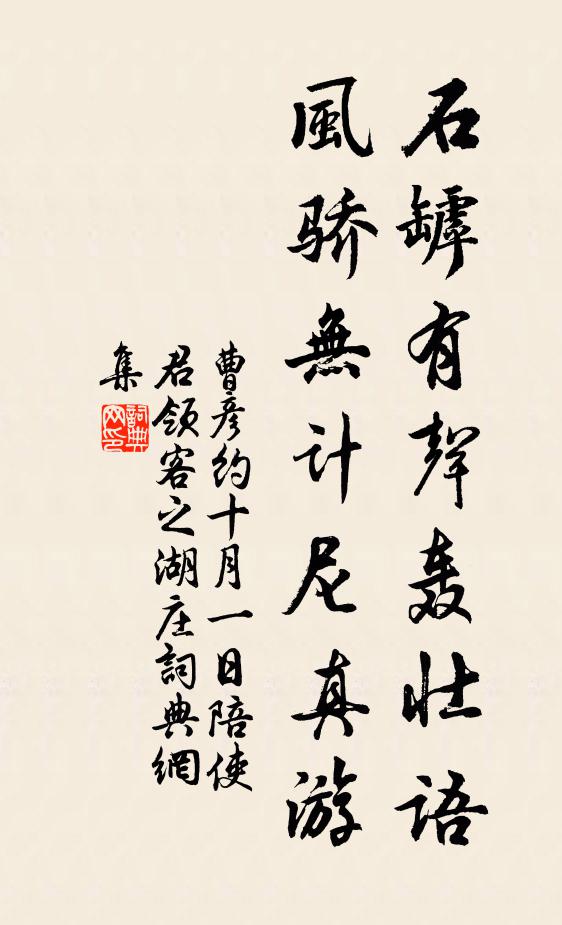 石罅有聲轰壮語
風骄無计尼真游
曹彦约十月一日陪使
君领客之湖庄詞典網
集
詞典網印